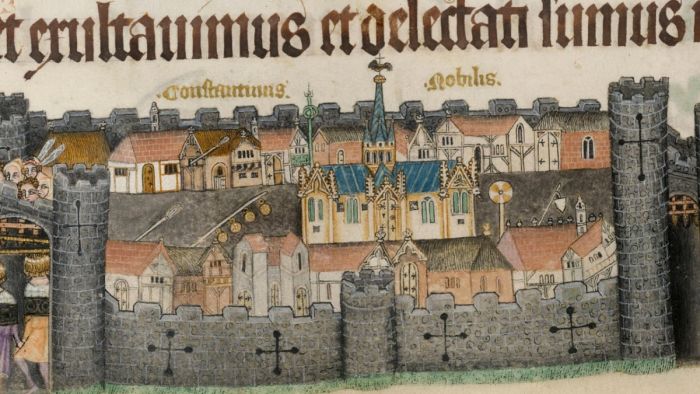 et exultauimus et delectati sumus
.Constantinus. .Nobilis.